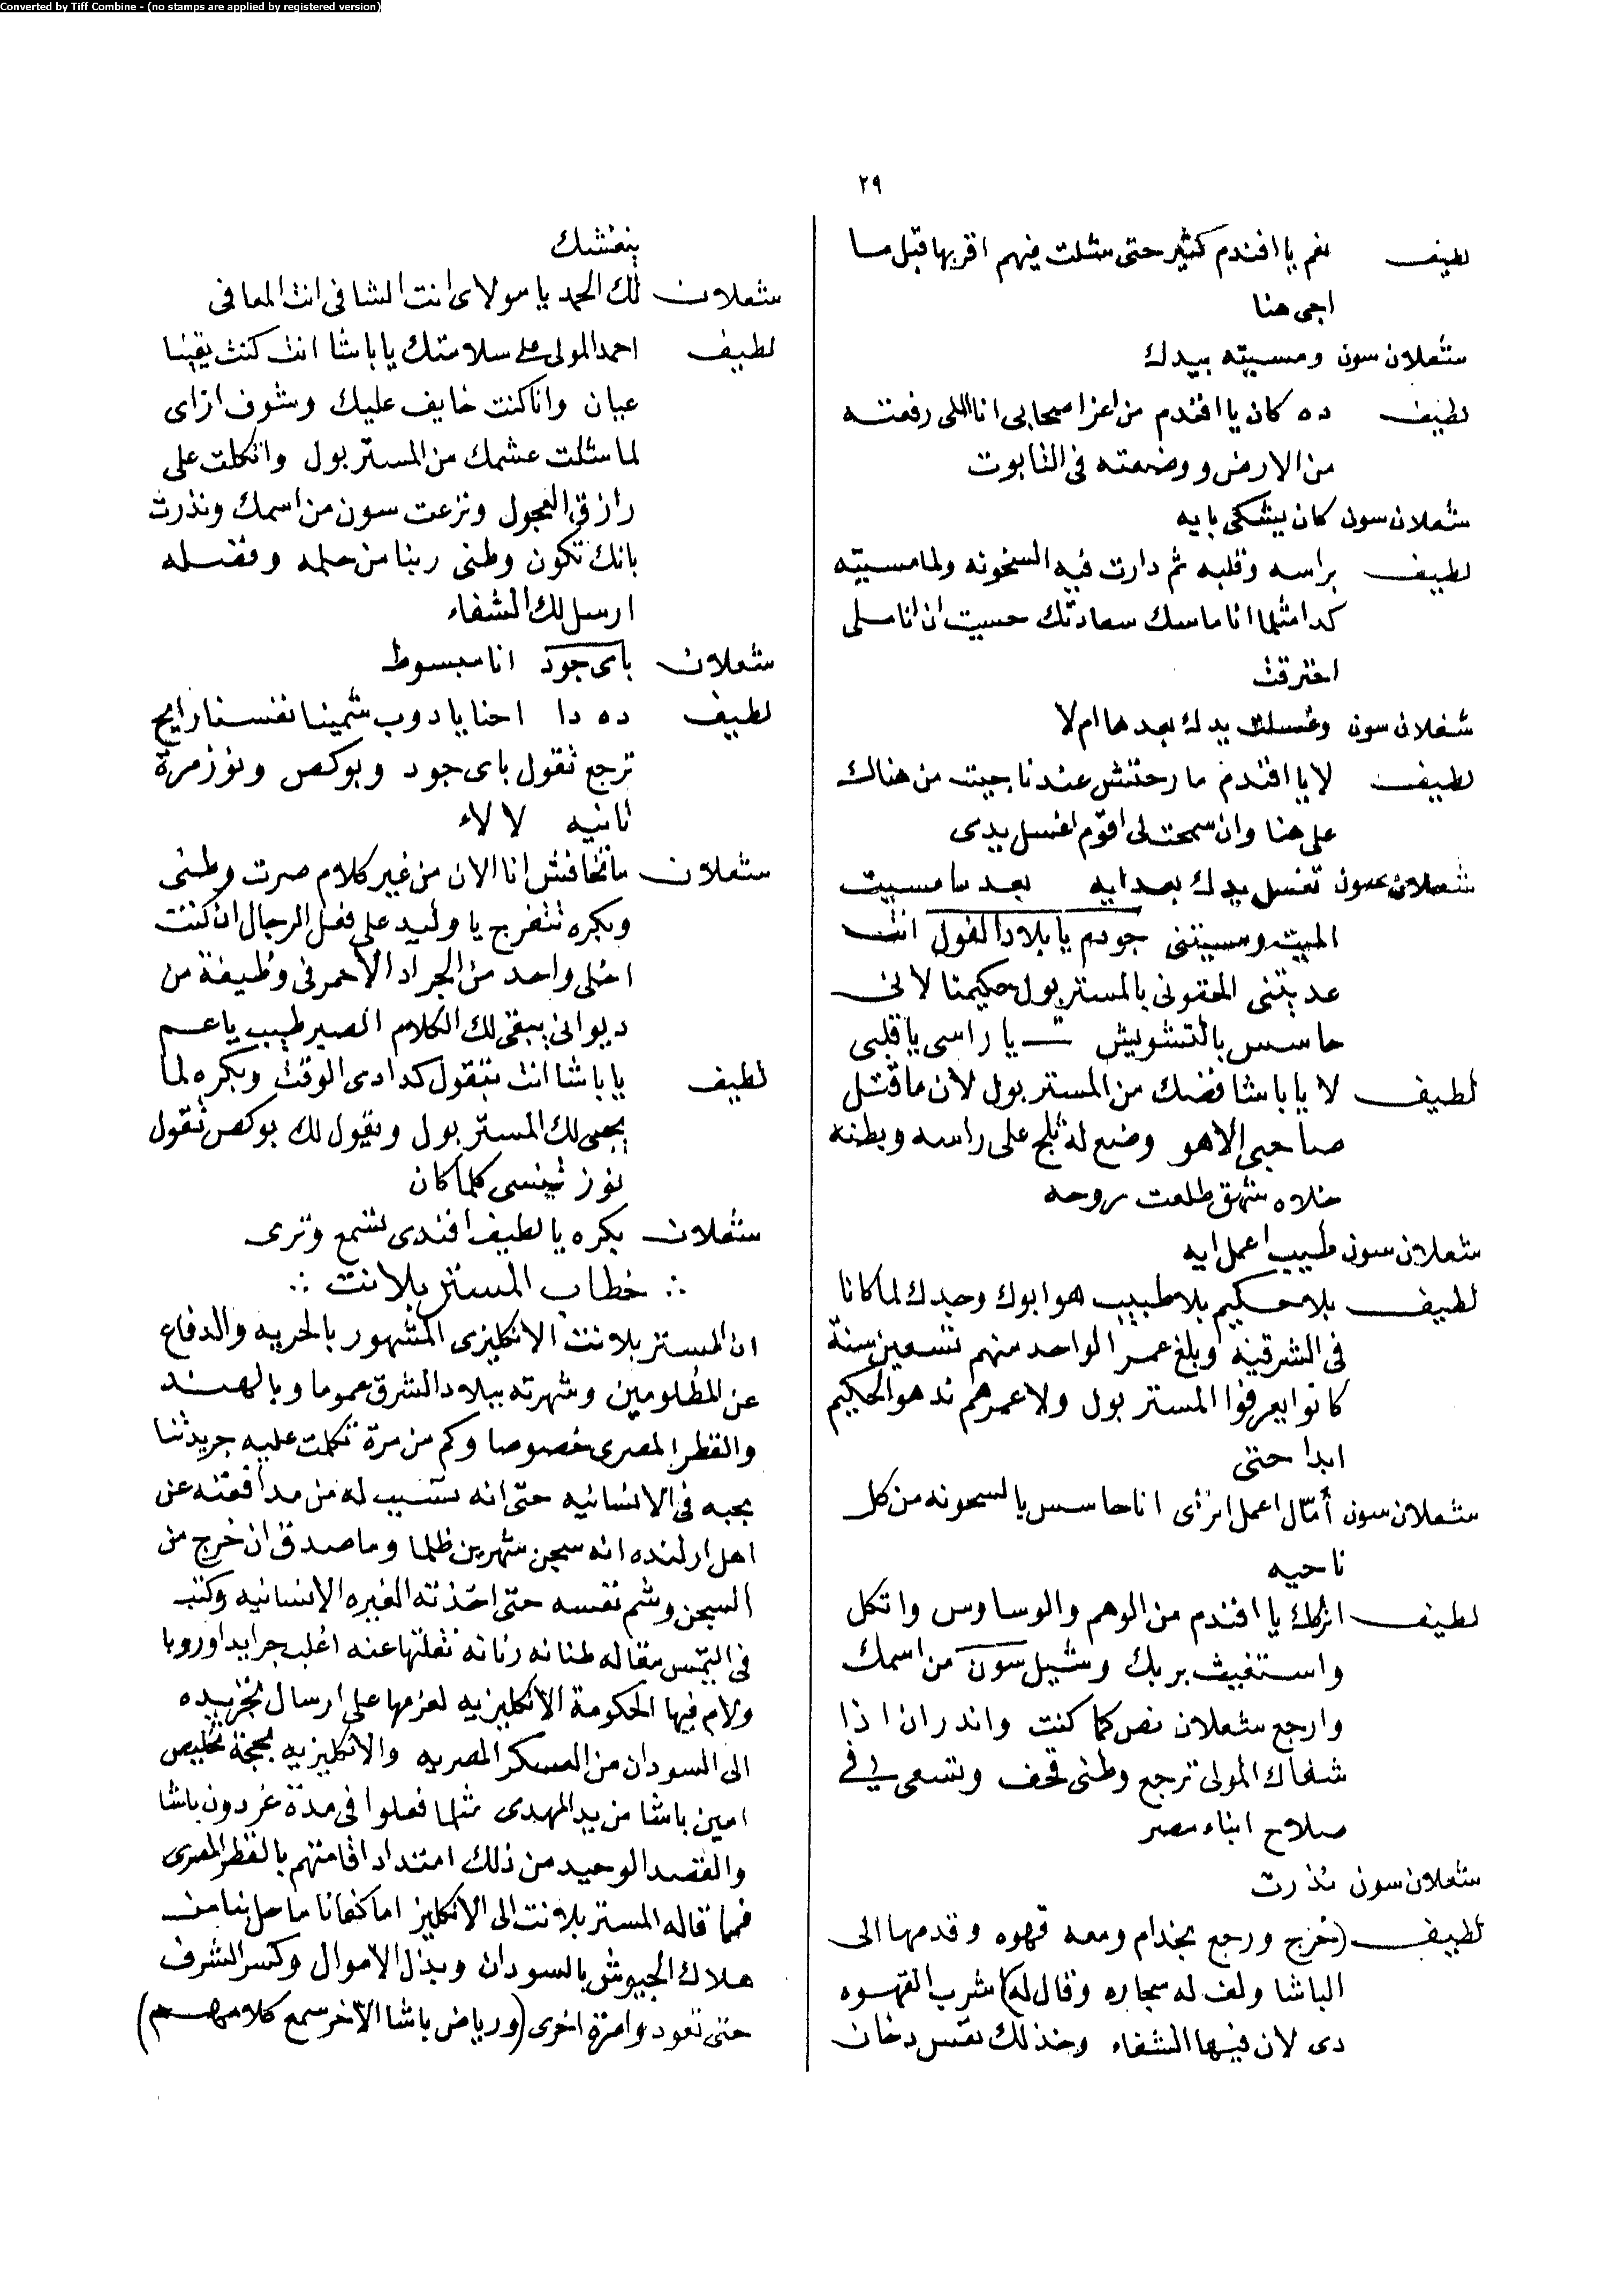 Converted by Tiff Combine - (no stamps are applied by registered version)
٢٩
لطيف نعم يا افندم كتير حتى شلت فيهم اقربها قبل ما
اجى هنا
شعلان سون ومسيته بيدك
لطيف ده كان يا افندم من اعز اصحابى انا اللى رفعته
من الارض ووضعته فى التابوت
شعلان سون كان بيشتكى بايه
لطيف براسه وقلبه ثم دارت فيه السخونه ولما مسيته
كدا مثلما انا ماسك سعادتك حسيت ان انا ملى
احترقت
شعلان سون وغسلت يدك بعدها ام لا
لطيف لا يا افندم ما رحتش عندنا جيت من هناك
على هنا وان سمحت لى اقوم اغسل يدى
شعلان سون تغسل يدك بعد ايه بعد ما مسيت
الميت ومسيتنى جودم يا بلاد الفول انت
عديتنى الحقونى بالمستر بول حكيمنا لانى
حاسس بالتشويش — يا راسى يا قلبى
لطيف لا يا باشا فضك من المستر بول لان ما قتل
صاحبى الا هو وضع له ثلج على راسه وبطنه
خلاه شهق طلعت روحه
شعلان سون طيب اعمل ايه
لطيف بلا حكيم بلا طبيب هو ابوك وجدك لما كانا
فى الشرقيه وبلغ عمر الواحد منهم تسعين سنة
كانوا يعرفوا المستر بول ولا عمرهم ندهوا الحكيم
ابدا حتى
شعلان سون أمّال اعمل ازّى انا حاسس بالسخونه من كل
ناحيه
لطيف اتركك يا افندم من الوهم والوساوس واتكل
واستغيث بربك وشيل سون من اسمك
وارجع شعلان نص كما كنت واندر ان اذا
شفاك المولى ترجع وطنى قحف وتسعى لى فى
صلاح ابناء مصر
شعلان سون نذرت
لطيف (خرج ورجع بخدام ومعه قهوه وقدمها الى
الباشا ولف له سجاره وقال له) اشرب القهوه
دى لان فيها الشفاء وخذ لك نفس دخان
ينعشك
شعلان لك الحمد يا مولاى انت الشافى انت المعافى
لطيف احمد المولى على سلامتك يا باشا انت كنت يقينا
عيان وانا كنت خايف عليك وشوف ازاى
لما شلت عشمك من المستر بول واتكلت على
رازق العجول ونزعت سون من اسمك ونذرت
بانك تكون وطنى ربنا من حلمه وفضله
ارسل لك الشفاء
شعلان باى جود انا مبسوط
لطيف ده دا احنا يا دوب شمينا نفسنا رايح
ترجع تقول باى جود وبوكص ونوز مرة
ثانيه لا لاء
شعلان ماتخافش انا الان من غير كلام صرت وطنى
وبكره تتفرج يا وليد على فعل الرجال ان كنت
اخلى واحد من الجراد الاحمر فى وظيفة من
ديوانى يبقى لك الكلام الصير طيب يا عم
لطيف يا باشا انت بتقول كدا دى الوقت وبكره لما
يجى لك المستر بول ويقول لك بوكص تقول
نوز تنسى كلما كان
شعلان بكره يا لطيف افندى تسمع وترى
∴ خطاب المستر بلانت ∴
ان المستر بلانت الانكليزى المشهور بالحريه والدفاع
عن المظلومين وشهرته ببلاد الشرق عموما وبالهند
والقطر المصرى خصوصا وكم من مرة تكلمت عليه جريدتنا
بحبه فى الانسانيه حتى انه تسبب له من مدافعته عن
اهل ارلنده انه سجن شهرين ظلما وما صدق ان خرج من
السجن وشم نفسه حتى اخذته الغيره الانسانيه وكتب
فى التيمس مقاله طنانه رنانه نقلتها عنه اغلب جرايد اوروبا
ولام فيها الحكومة الانكليزيه لعزمها على ارسال تجريده
الى السودان من العسكر المصريه والانكليزيه بحجة تخليص
امين باشا من يد المهدى مثلما فعلوا فى مدة غردون باشا
والقصد الوحيد من ذلك امتداد اقامتهم بالقطر المصرى
فمما قاله المستر بلانت الى الانكليز اما كفانا ما حل بنا من
هلاك الجيوش بالسودان وبذل الاموال وكسر الشرف
حتى نعود وامرة اخرى (ورياض باشا الآخر سمع كلامهم)